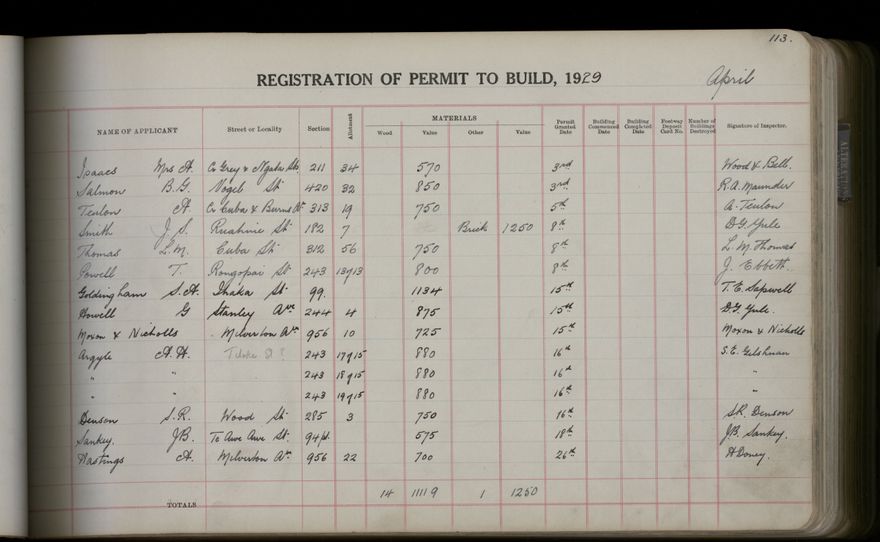 113.
REGISTRATION OF PERMIT TO BUILD, 1929 April
NAME OF APPLICANT Street or Locality Section Allotment MATERIALS Wood Value Other Value Permit Granted Date Building Commenced Date Building Completed Date Footway Deposit Card No. Number of Buildings Destroyed Signature of Inspector.
Isaacs Mrs A. Cr Grey & Ngata Sts 211 34 570 3rd Wood & Bell.
Salmon B.G. Vogel St 420 32 850 3rd R.A. Maunder
Tenlon A. Cr Cuba & Burns Av 313 19 750 5th A. Tenlon
Smith J.S. Ruahine St 182 7 Brick 1250 8th D.G. Yule
Thomas L.M. Cuba St 312 56 750 8th L.M. Thomas
Powell T. Rongopai St 243 13 of 13 800 8th J. Ebbett.
Goldingham S.A. Ihaka St 99. 1134 15th T.E. Sapwell
Howell G Stanley Ave 244 4 875 15th D.G. Yule.
Moxon & Nicholls Milverton Ave 956 10 725 15th Moxon & Nicholls
Argyle A.H. 243 17 of 15 880 16th S.E.
" " 243 18 of 15 880 16th "
" " 243 19 of 15 880 16th "
Denson S.R. Wood St 285 3 750 16th S.R. Denson
Sankey. J.B. Te Awe Awe St. 94 pt. 575 18th J.B. Sankey.
Hastings A. Milverton Ave 956 22 700 26th A Doney.
TOTALS 14 11119 1 1250
ALTERATION